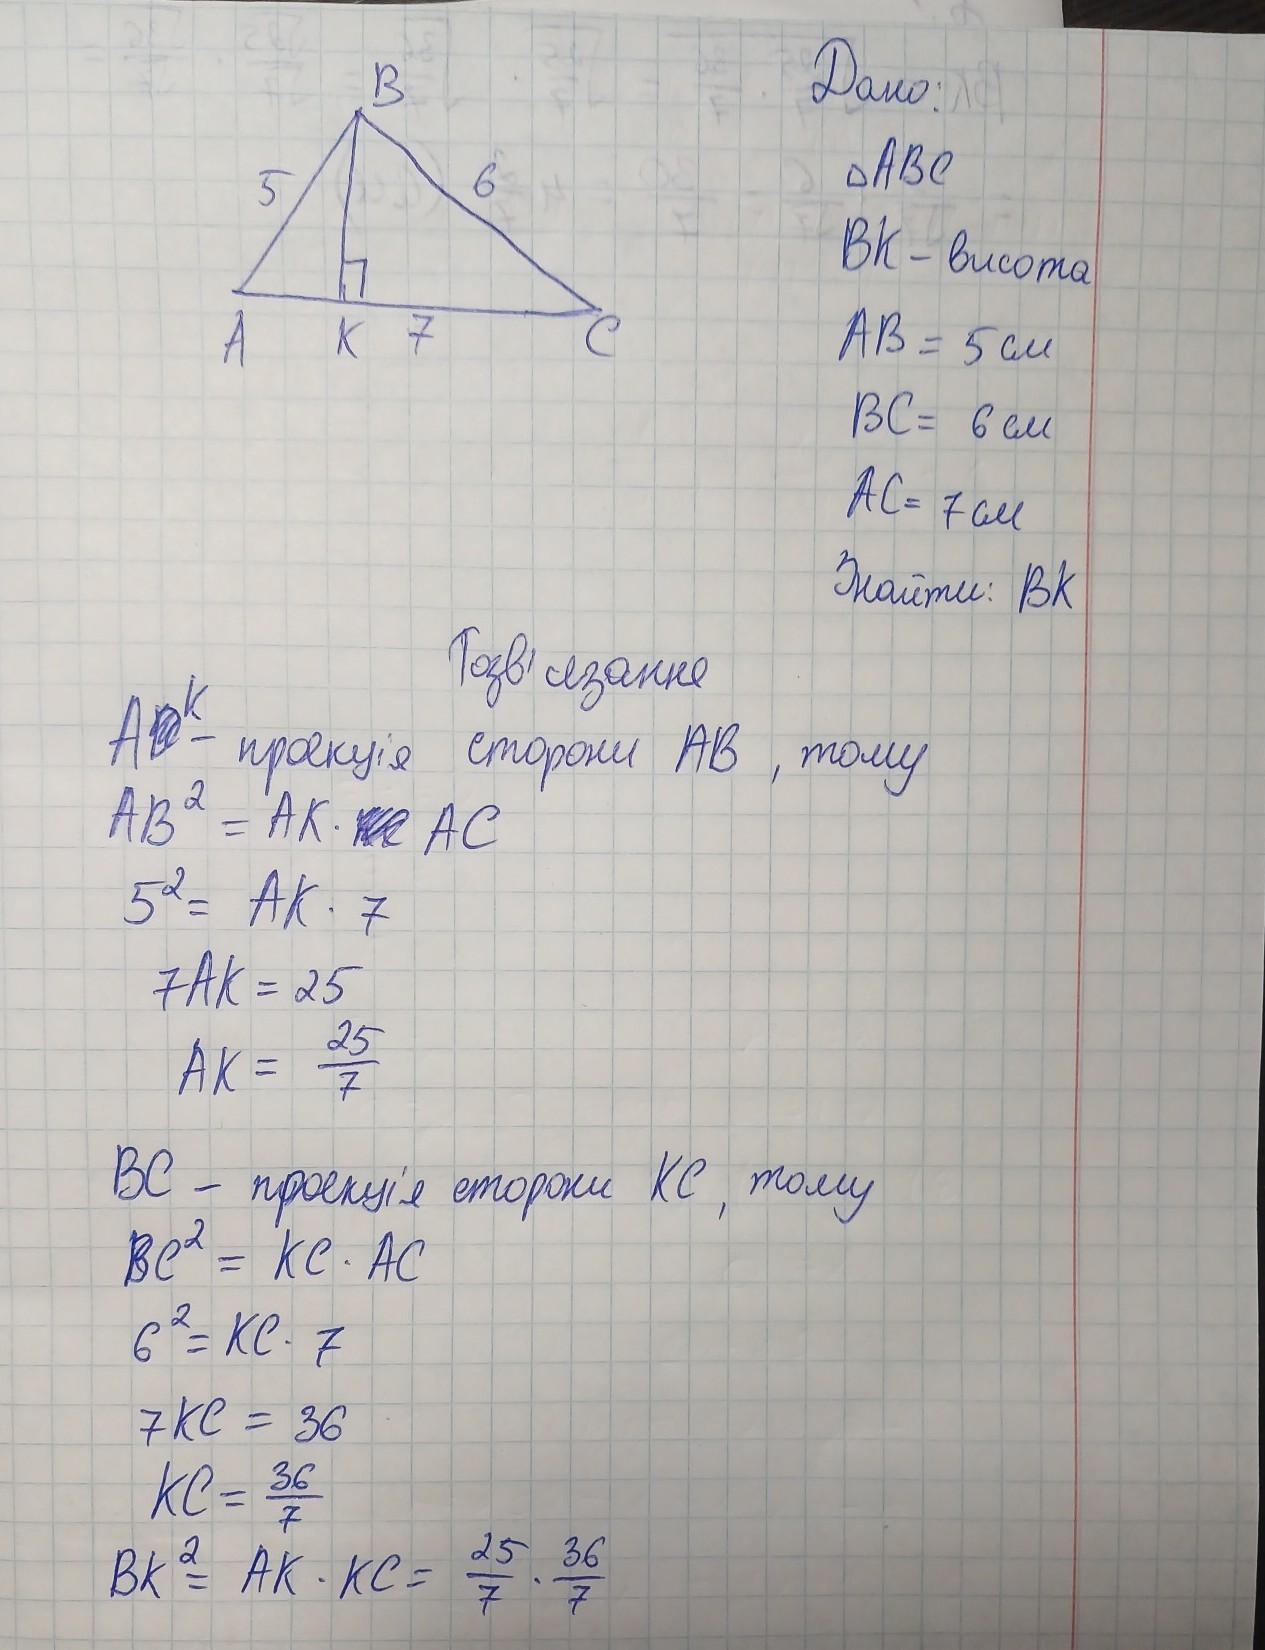 B
5
6
A K 7 C
Дано:
△ABC
BK – висота
AB = 5 см
BC = 6 см
AC = 7 см
Знайти: BK
Розв'язання
AK – проекція сторони AB, тому
AB² = AK · AC
5² = AK · 7
7AK = 25
AK = 25/7
BC – проекція сторони KC, тому
BC² = KC · AC
6² = KC · 7
7KC = 36
KC = 36/7
BK² = AK · KC = 25/7 · 36/7